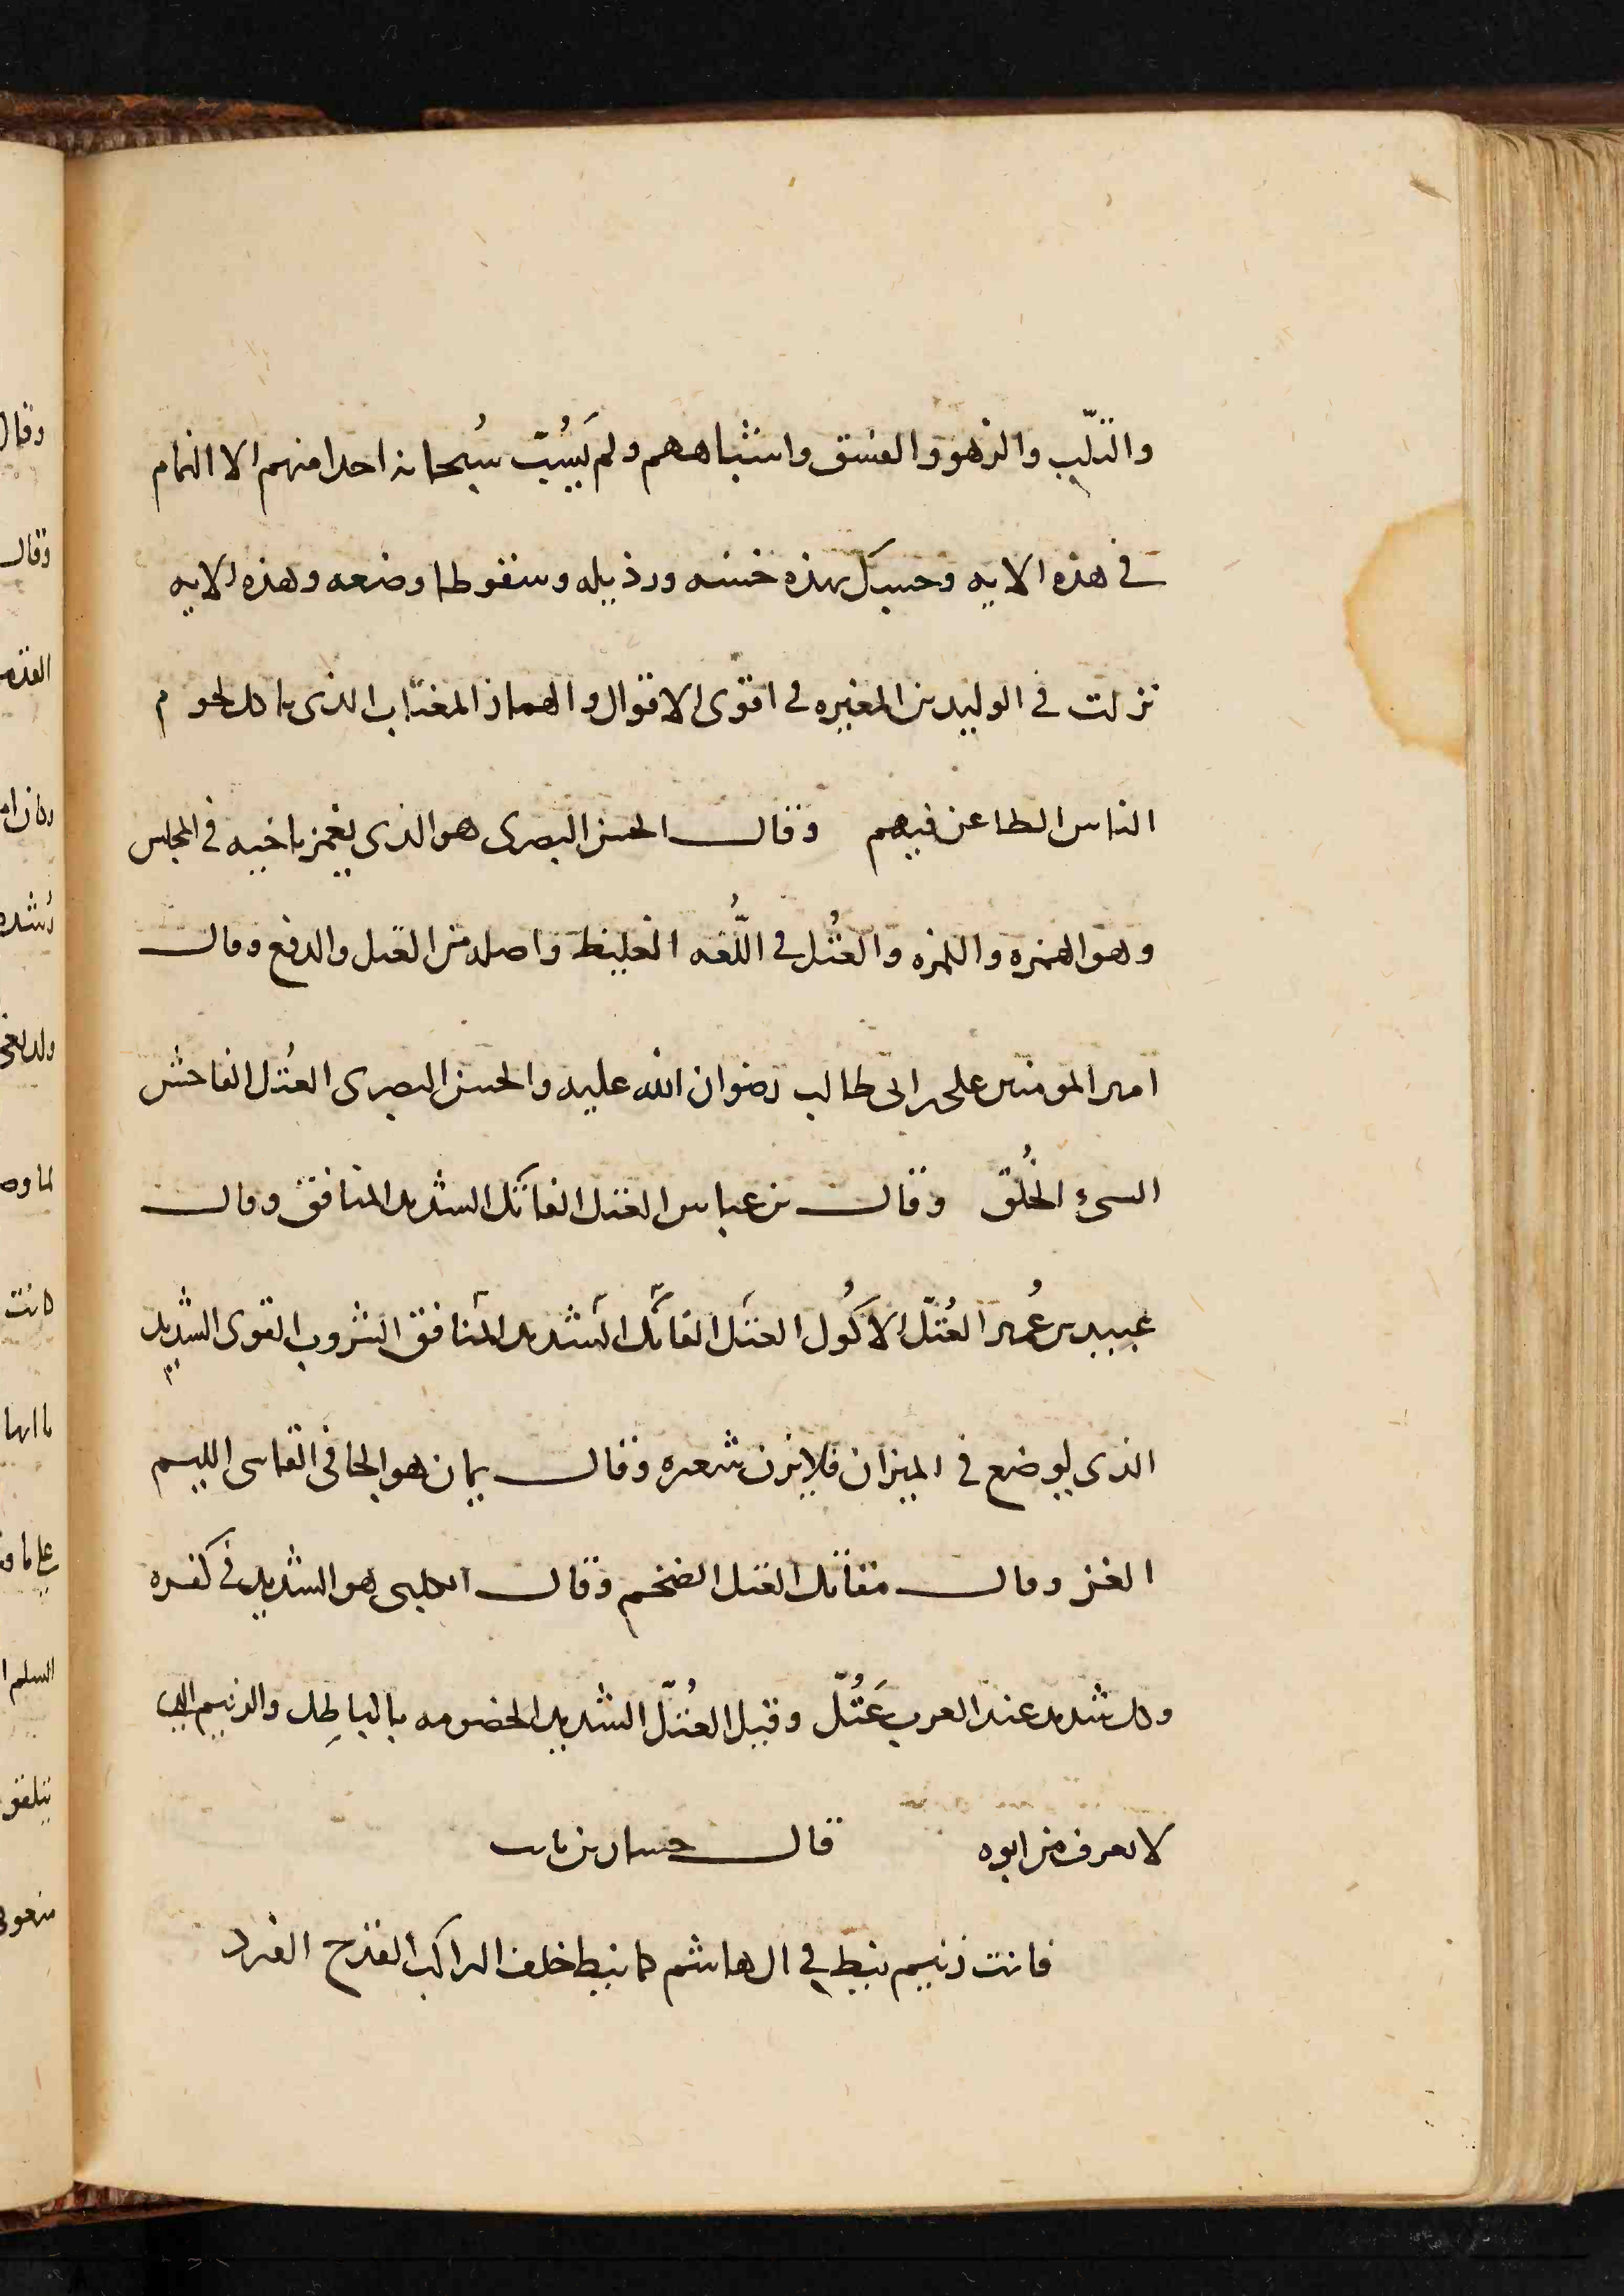 والتلّب والزهو والفسق واشباههم ولم يَسُبّ سُبحانه احدا منهم الا النمام
في هذه الايه وحسبك بهذه خسه ورذيله وسقوطا وضعه وهذه الايه
نزلت في الوليد بن المغيره في اقوى الاقوال والهماز المغتاب الذى ياكل لحوم
الناس الطاعن فيهم وقال الحسن البصرى هو الذى يغمز باخيه في المجلس
وهو الهمزه واللمزه والعُتُل في اللُّغه الغليظ واصله من العتل والدفع وقال
امير المومنين على بن ابى طالب رضوان الله عليه والحسن البصرى العُتُل الفاحش
السىء الخُلُق وقال بن عباس العتل الفاتك الشديد المنافق وقال
عبيد بن عُمير العُتُلّ الاكُول العتل الفاتك الشديد المنافق الشروب القوى الشديد
الذى يوضع في الميزان فلا يزن شعره وقال يمان هو الجافى القاسى الليم
العز وقال مقاتل العتل الضخم وقال الكلبى هو الشديد في كفره
وكل شديد عند العرب عَتُلّ وقيل العُتُلّ الشديد الخصومه بالباطِل والزنيم الذى
لا يعرف من ابوه قال حسان بن ثابت
فانت زنيم نيط في ال هاشم كما نيط خلف الراكب القدح الفرد
وقال
وقال